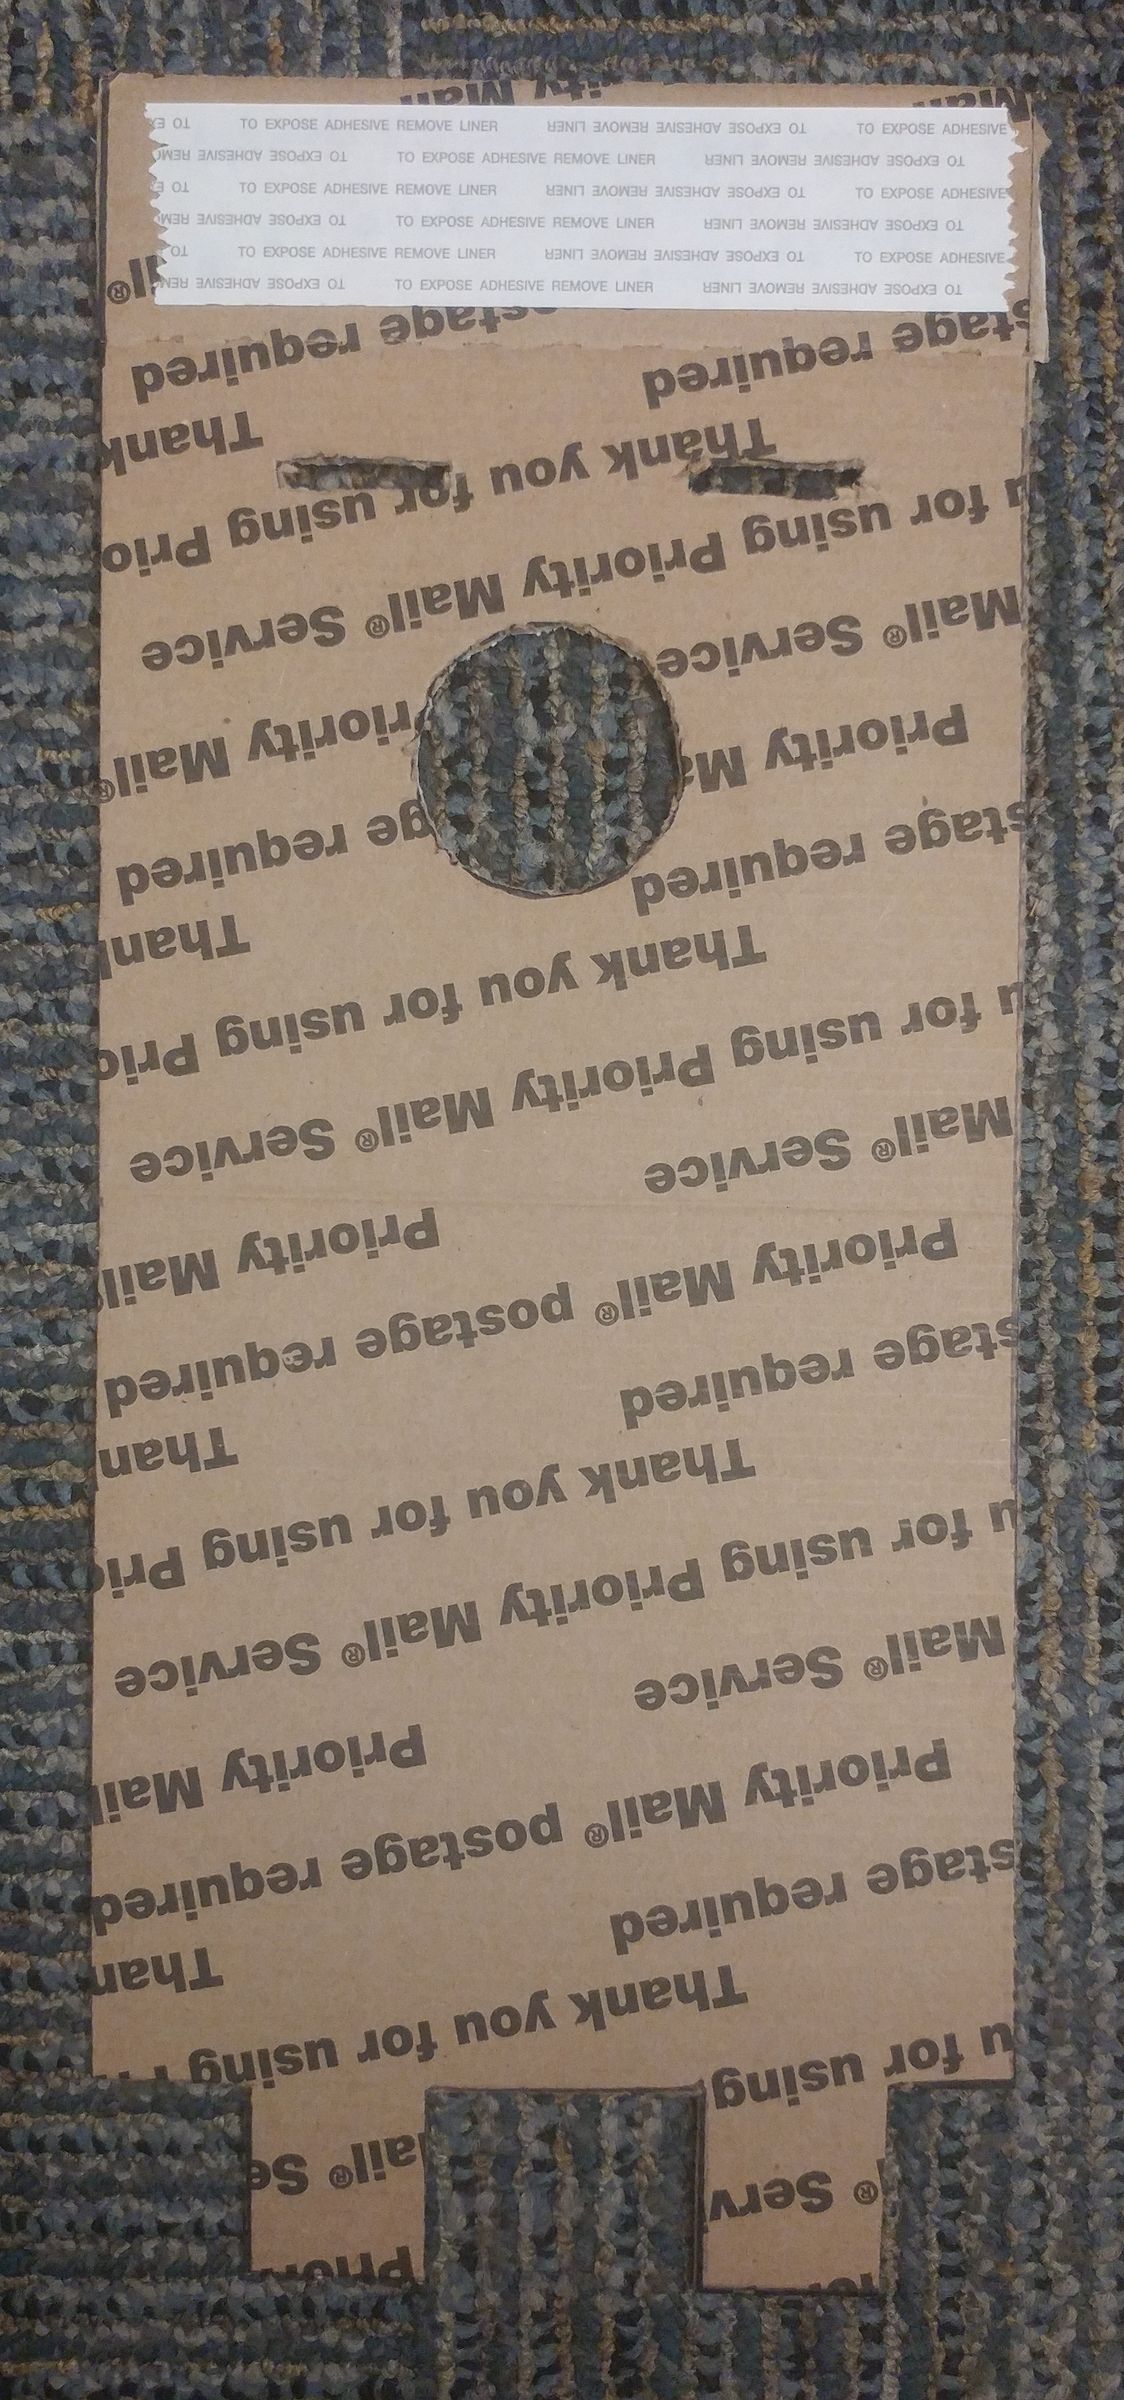 Mail
ity Mail
Mail
TO EX
TO EXPOSE ADHESIVE REMOVE LINER
TO EXPOSE ADHESIVE REMOVE LINER
TO EXPOSE ADHESIVE
TO EXPOSE ADHESIVE REM
TO EXPOSE ADHESIVE REMOVE LINER
TO EXPOSE ADHESIVE REMOVE LINER
TO EX
TO EXPOSE ADHESIVE REMOVE LINER
TO EXPOSE ADHESIVE REMOVE LINER
TO EXPOSE ADHESIVE
TO EXPOSE ADHESIVE REM
TO EXPOSE ADHESIVE REMOVE LINER
TO EXPOSE ADHESIVE REMOVE LINER
TO
TO EXPOSE ADHESIVE REMOVE LINER
TO EXPOSE ADHESIVE REMOVE LINER
TO EXPOSE ADHESIVE
TO EXPOSE ADHESIVE REM
TO EXPOSE ADHESIVE REMOVE LINER
TO EXPOSE ADHESIVE REMOVE LINER
il®
stage required
stage required
Thank
Thank you for using Prio
u for using Priority Mail® Service
Mail® Service
Priority Mail®
Priority Ma
ge required
stage required
Thank
Thank you for using Prio
u for using Priority Mail® Service
Mail® Service
Priority Mail
Priority Mail® postage required
stage required
Than
Thank you for using Prio
u for using Priority Mail® Service
Mail® Service
Priority Mail
Priority Mail® postage required
stage required
Than
Thank you for using
u for using
ail® S
® Serv
Prior